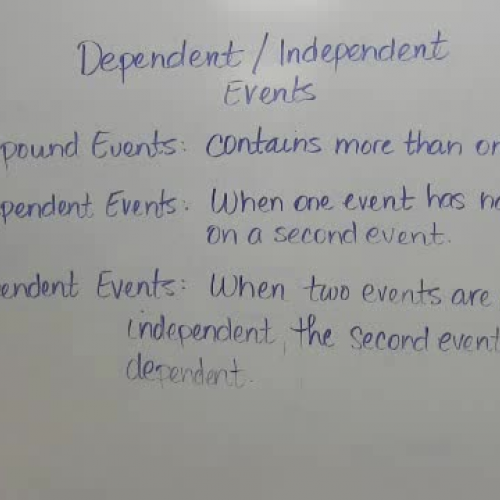 Dependent / Independent
Events
pound Events: contains more than on
pendent Events: When one event has no
on a second event.
endent Events: When two events are
independent, the second event
dependent.